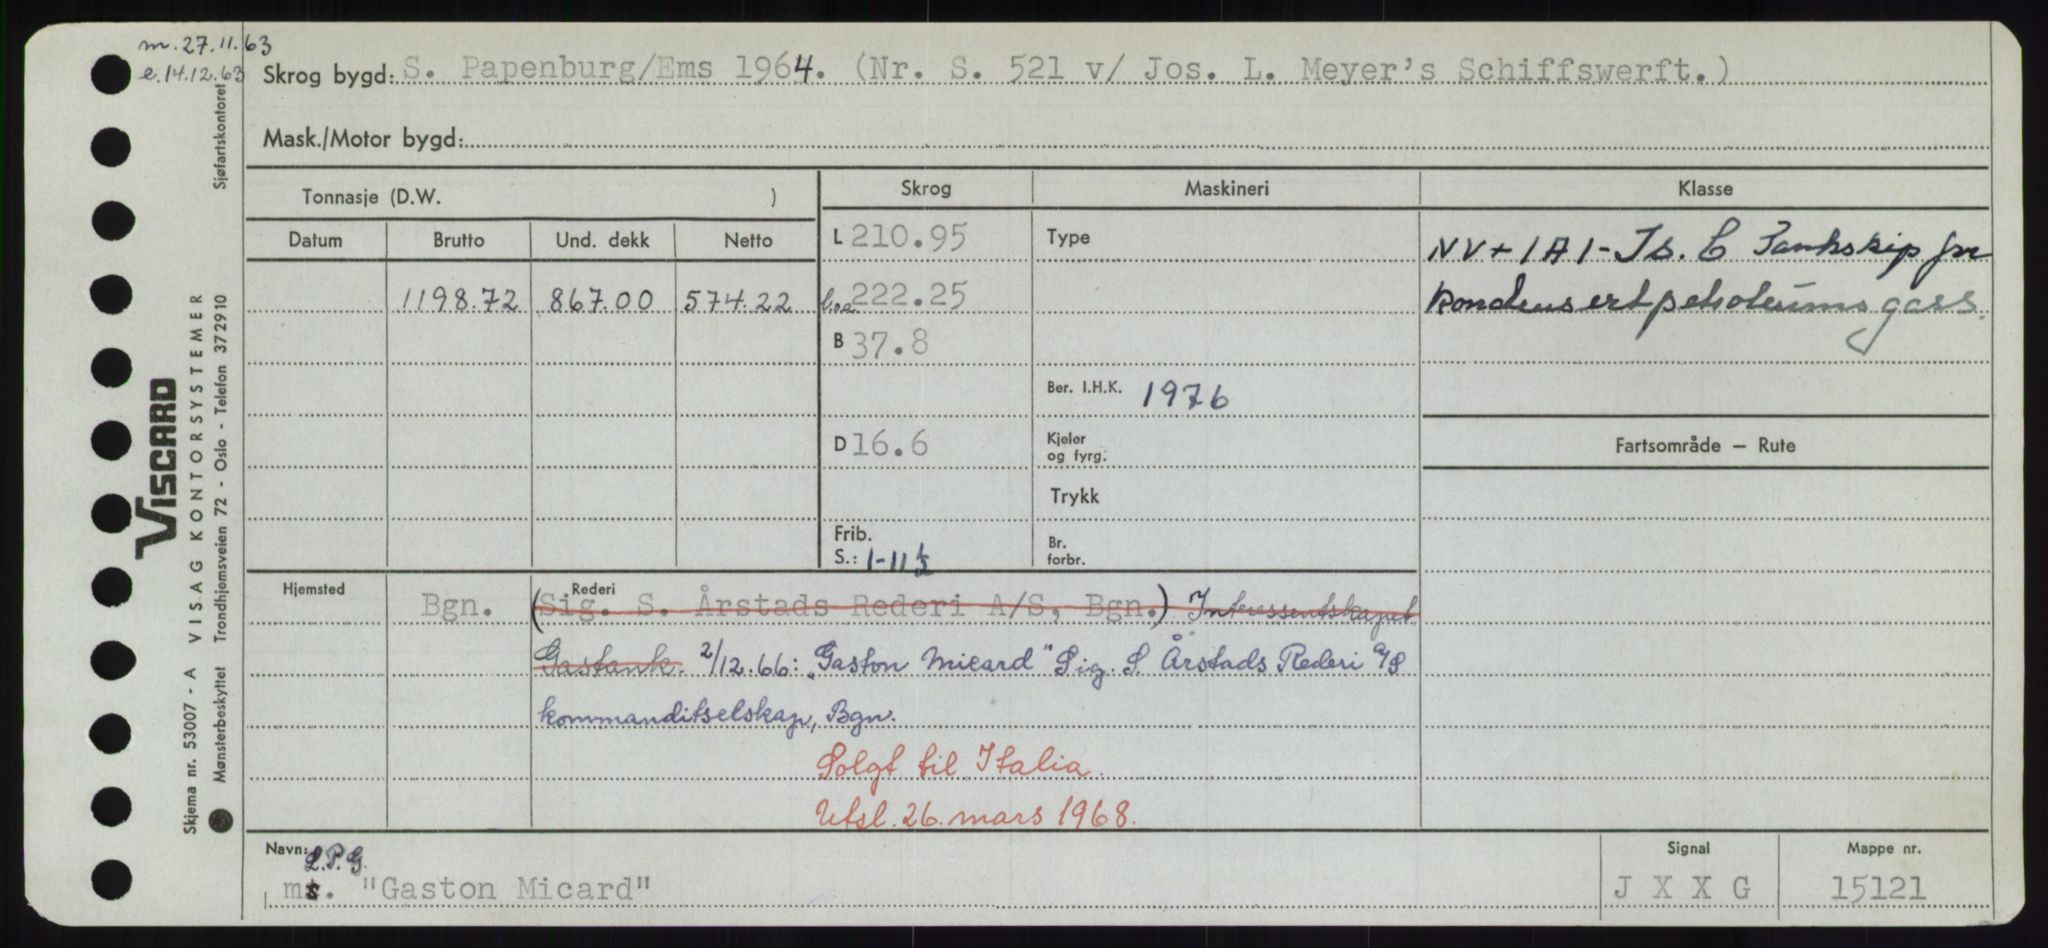 m. 27.11.63
e. 14.12.63
Skrog bygd: S. Papenburg/Ems 1964. (Nr. S. 521 v/ Jos. L. Meyer's Schiffswerft.)
Mask./Motor bygd:
Tonnasje (D.W. )
Skrog
Maskineri
Klasse
Datum Brutto Und. dekk Netto
L 210.95
Type
NV + 1A1 - Is. C Tankskip for
1198.72 867.00 574.22
l.o.a. 222.25
kondensert petroleumsgass.
B 37.8
Ber. I.H.K. 1976
D 16.6
Kjeler
og fyrg.:
Fartsområde — Rute
Trykk
Frib.
S.: 1-11½
Br.
forbr.
Hjemsted
Rederi
Bgn. (Sig. S. Årstads Rederi A/S, Bgn.) Interessentskapet
Gastank. 2/12.66: "Gaston Micard" Sig. S. Årstads Rederi A/S
kommanditselskap, Bgn.
Solgt til Italia.
Utsl. 26. mars 1968.
Navn: L.P.G.
ms. "Gaston Micard"
Signal
J X X G
Mappe nr.
15121
VISCARD
Skjema nr. 53007 - A VISAG KONTORSYSTEMER
Mønsterbeskyttet Trondhjemsveien 72 - Oslo - Telefon 372910 Sjøfartskontoret